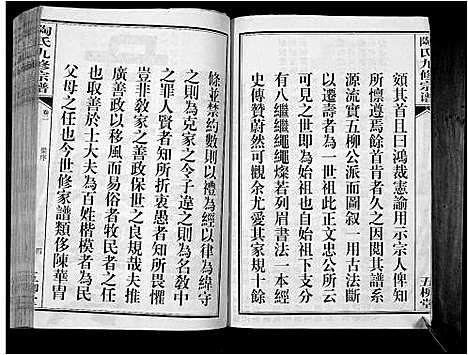 陶氏九修宗谱
五柳堂
頦其首且曰鴻哉憲論用示宗人俾知
所懷遵焉餘首肯者久之因閲其譜系
源流實五柳公派而圖叙一用歐法而
以遷壽者為一世祖此正文忠公所云
可見之世即為始祖可見之世即今日
有八繼繼繩繩燦若列眉書法一本經
史傳贊蔚然可觀余尤愛其家規十餘
條並禁約數則以禮為經以律為緯守
之則為克家之令子違之則為名教中
之罪人賢者知所折衷愚者知所做省
豈非敎家之善政保世之良規哉夫推
廣善政以移風而易俗者牧民者之任
也取善於士大夫為百姓楷模者為民
父母之任也今世修家譜類侈陳華胄
陶氏九修宗谱
卷一